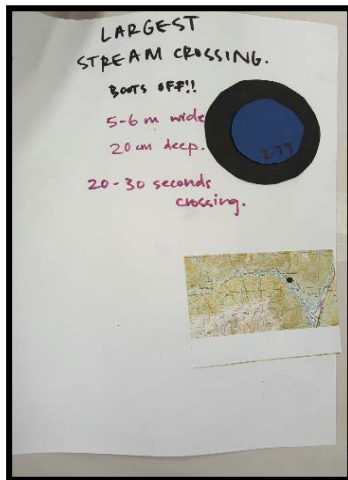 LARGEST
STREAM CROSSING.
BOOTS OFF!!
5-6 m wide
20 cm deep.
2.77
20-30 seconds
crossing.